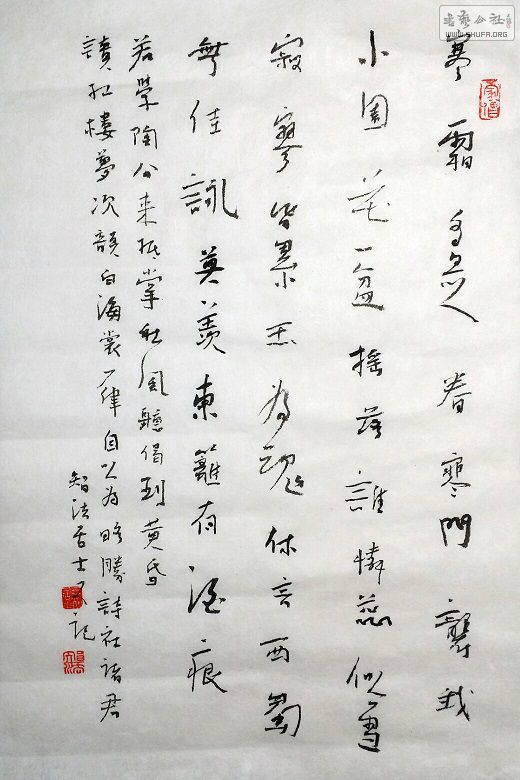 書藝公社
WWW.SHUFA.ORG
霜意眷寒門我
小園花一盆搖落誰憐蕊似雪
寂寥皆玉為魂休言西蜀
無佳詠莫羨東籬有酒痕
若學陶公來抵掌秋風聽偈到黃昏
讀紅樓夢次韻白海裳一律自以為略勝詩社諸君
智法居士又記